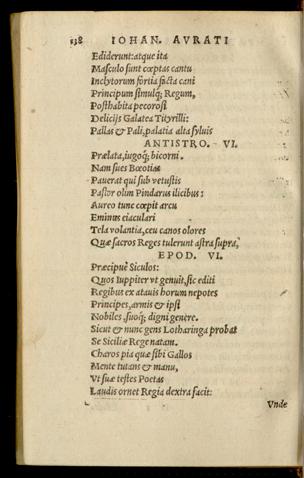 138 IOHAN. AVRATI
Ediderunt: atque ita
Masculo sunt cœptas cantu
Inclytorum fortia facta cani
Principum simulq́; Regum,
Posthabita pecorosi
Delicijs Galatea Tityrilli:
Pallas & Pali, palatia alta syluis
ANTISTRO. VI.
Prælata, iugoq́; bicorni.
Nam sues Bœotias
Pauerat qui sub vetustis
Pastor olim Pindarus ilicibus:
Aureo tunc cœpit arcu
Eminus eiaculari
Tela volantia, ceu canos olores
Quæ sacros Reges tulerunt astra supra,
EPOD. VI.
Præcipuè Siculos:
Quos Iuppiter vt genuit, sic editi
Regibus ex atauis horum nepotes
Principes, armis & ipsi
Nobiles, suoq́; digni genere.
Sicut & nunc gens Lotharinga probat
Se Siciliæ Rege natam.
Charos pia quæ sibi Gallos
Mente tutans & manu,
Vt suæ testes Poetas
Laudis ornet Regia dextra facit:
Vnde